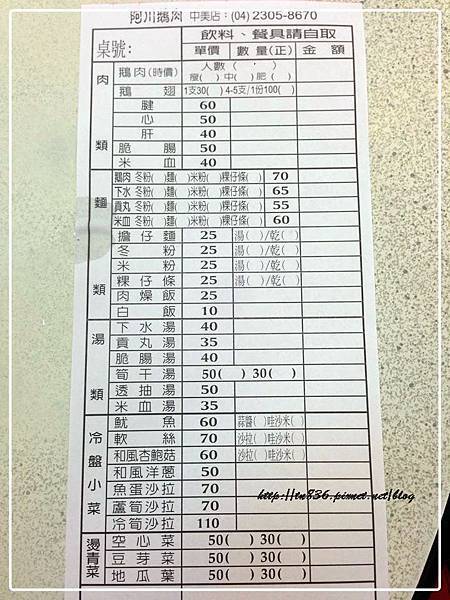 阿川鵝肉 中美店:(04) 2305-8670
桌號: 飲料、餐具請自取
單價 數量(正) 金額
肉類
鵝肉(時價) 人數( )
瘦( )中( )肥( )
鵝翅 1支30( ) 4-5支/1份100( )
腱 60
心 50
肝 40
脆腸 50
米血 40
麵類
鵝肉 冬粉( )麵( )米粉( )粿仔條( ) 70
下水 冬粉( )麵( )米粉( )粿仔條( ) 65
貢丸 冬粉( )麵( )米粉( )粿仔條( ) 55
米血 冬粉( )麵( )米粉( )粿仔條( ) 60
擔仔麵 25 湯( )/乾( )
冬粉 25 湯( )/乾( )
米粉 25 湯( )/乾( )
粿仔條 25 湯( )/乾( )
肉燥飯 25
白飯 10
湯類
下水湯 40
貢丸湯 35
脆腸湯 40
筍干湯 50( ) 30( )
透抽湯 50
米血湯 35
冷盤小菜
魷魚 60 蒜醬( )哇沙米( )
軟絲 70 沙拉( )哇沙米( )
和風杏鮑菇 60 沙拉( )哇沙米( )
和風洋蔥 50
魚蛋沙拉 70
蘆筍沙拉 70
冷筍沙拉 110
燙青菜
空心菜 50( ) 30( )
豆芽菜 50( ) 30( )
地瓜葉 50( ) 30( )
http://tn836.pixnet.net/blog